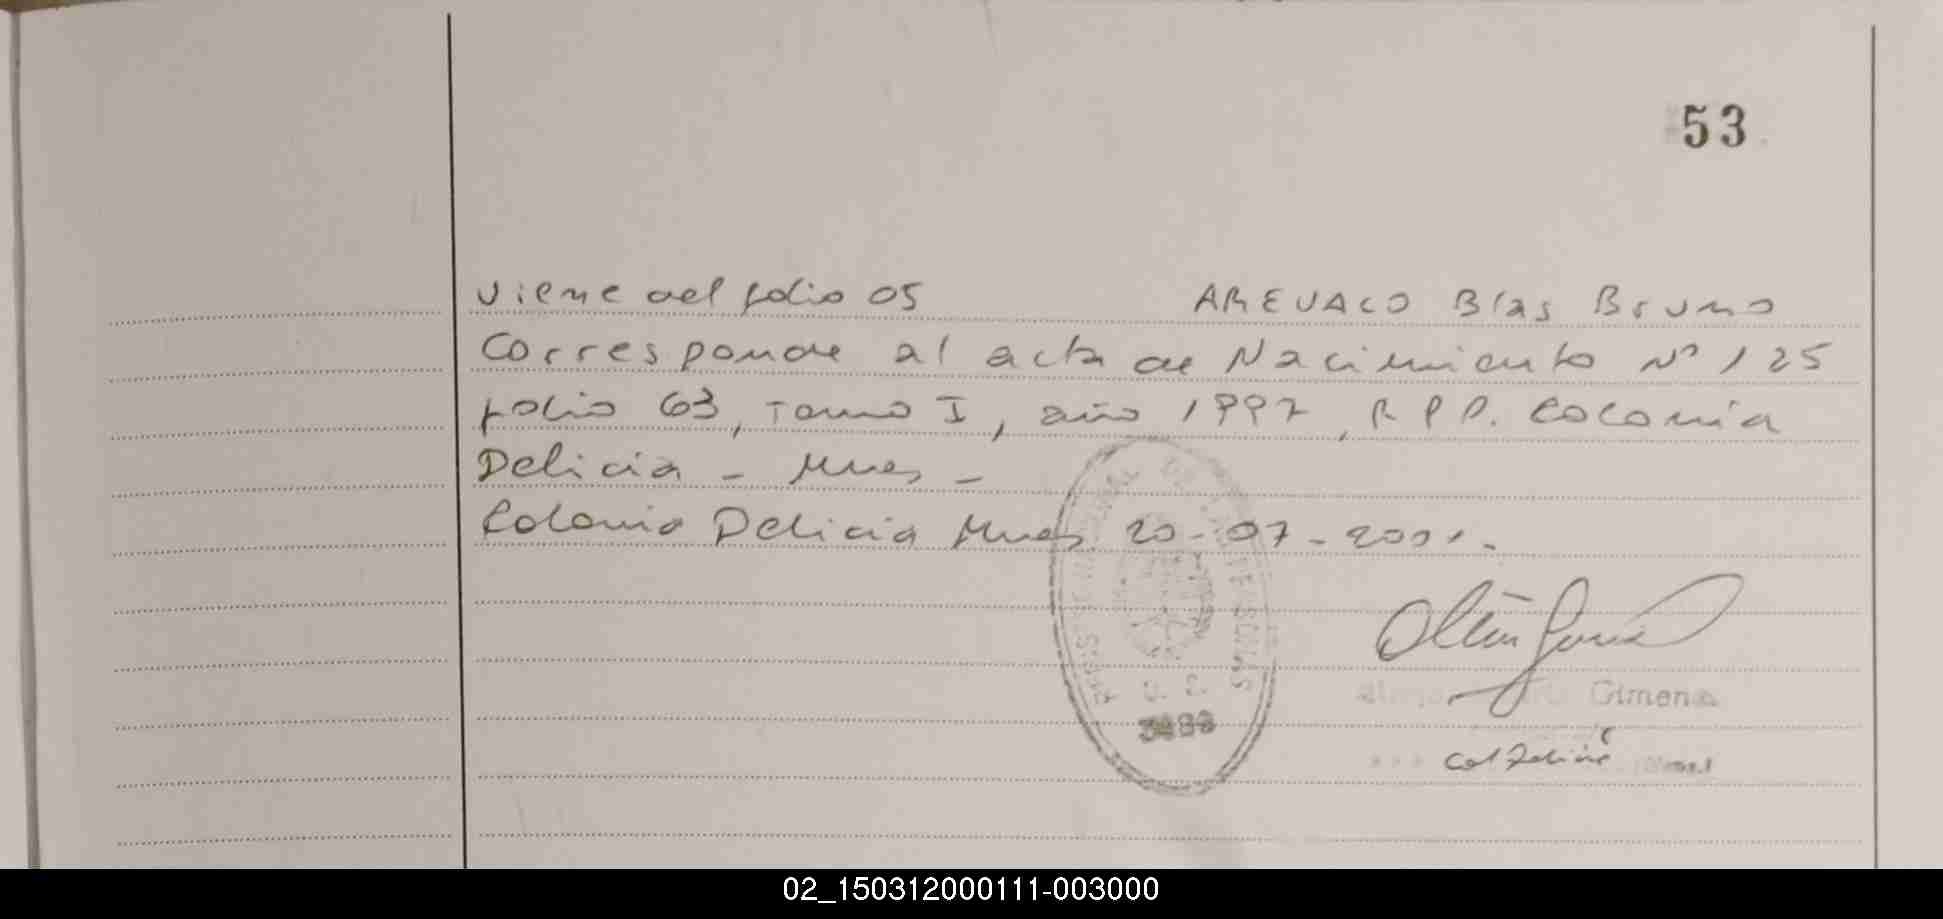 53
viene del folio 05 AREVALO Blas Bruno
Corresponde al acta de Nacimiento Nº 125
folio 63, Tomo I, año 1997, R P P. Colonia
Delicia - Mnes -
Colonia Delicia Mnes. 20-07-2001.-
Gimena
02_150312000111-003000